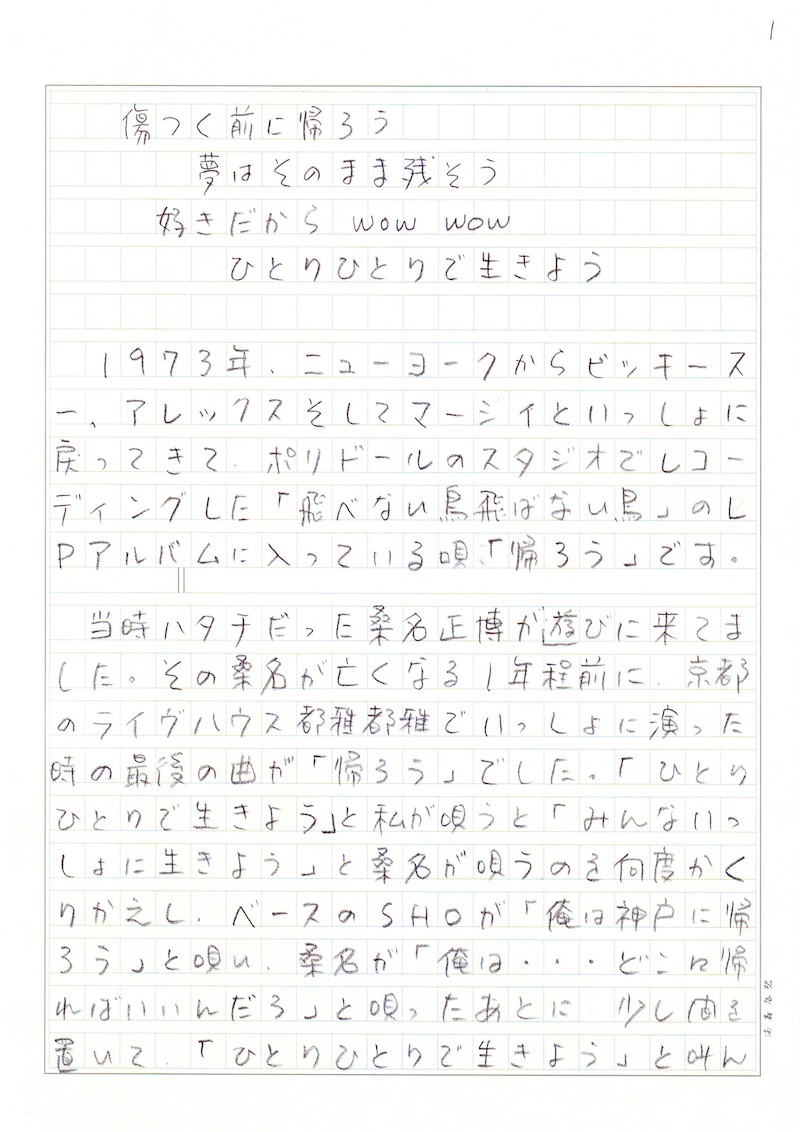 1
傷つく前に帰ろう
夢はそのまま残そう
好きだから wow wow
ひとりひとりで生きよう
1973年、ニューヨークからビッキース
ー、アレックスそしてマージィといっしょに
戻ってきて、ポリドールのスタジオでレコー
ディングした「飛べない鳥飛ばない鳥」のL
Pアルバムに入っている唄「帰ろう」です。
当時ハタチだった桑名正博が遊びに来てま
した。その桑名が亡くなる1年程前に、京都
のライヴハウス都雅都雅でいっしょに演った
時の最後の曲が「帰ろう」でした。「ひとり
ひとりで生きよう」と私が唄うと「みんないっ
しょに生きよう」と桑名が唄うのを何度かく
りかえし、ベースのSHOが「俺は神戸に帰
ろう」と唄い、桑名が「俺は・・・どこに帰
ればいいんだろ」と唄ったあとに 少し間を
置いて、「ひとりひとりで生きよう」と叫ん